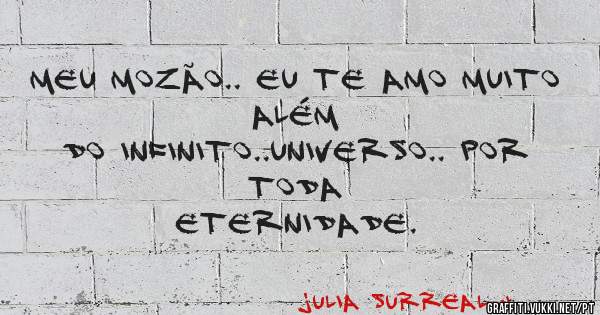 MEU MOZÃO.. EU TE AMO MUITO
ALÉM
DO INFINITO..UNIVERSO.. POR
TODA
ETERNIDADE.
JULIA SURREAL
GRAFFITI.VUKKI.NET/PT